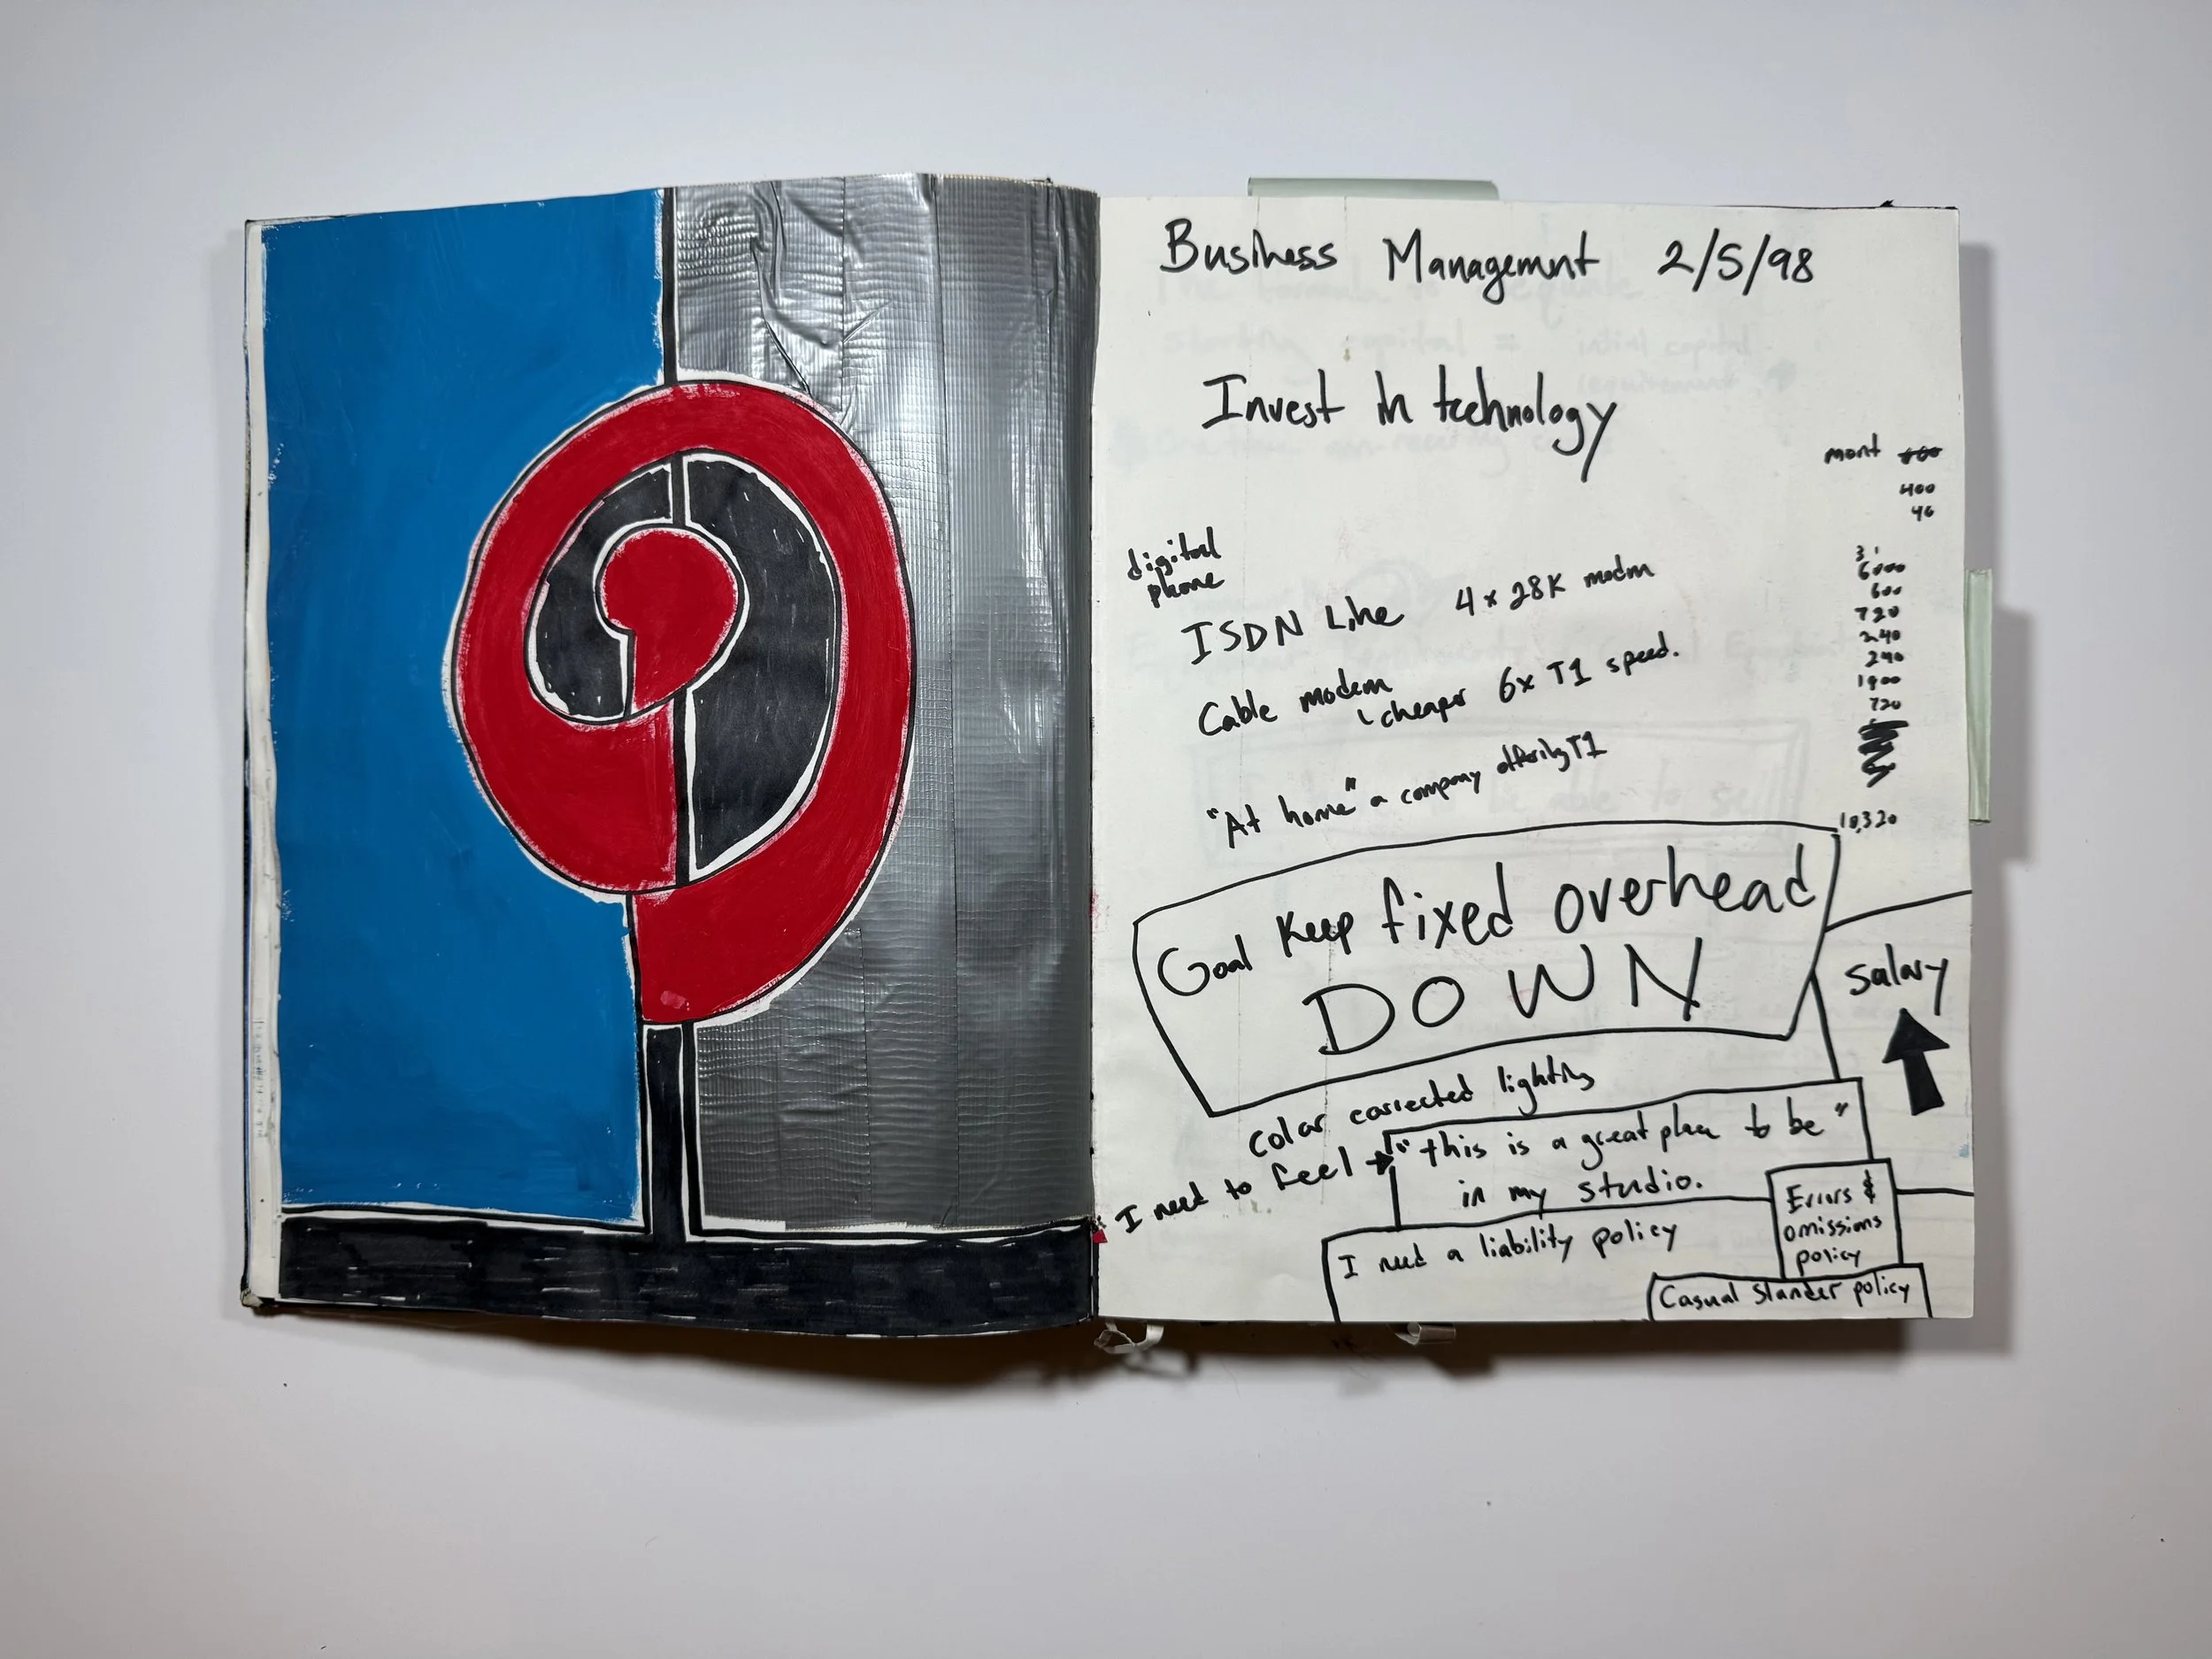 Business Managemnt 2/5/98
Invest in technology
mont
400
40
digital
phone
ISDN Line 4 x 28K modm
Cable modem
cheaper 6x T1 speed.
"At home" a company offering T1
6000
600
720
240
240
1900
720
10,320
Goal Keep fixed overhead
DOWN
Salary
color corrected lighting
I need to feel → "this is a great place to be"
in my studio.
I need a liability policy
Errors &
omissions
policy
Casual Slander policy